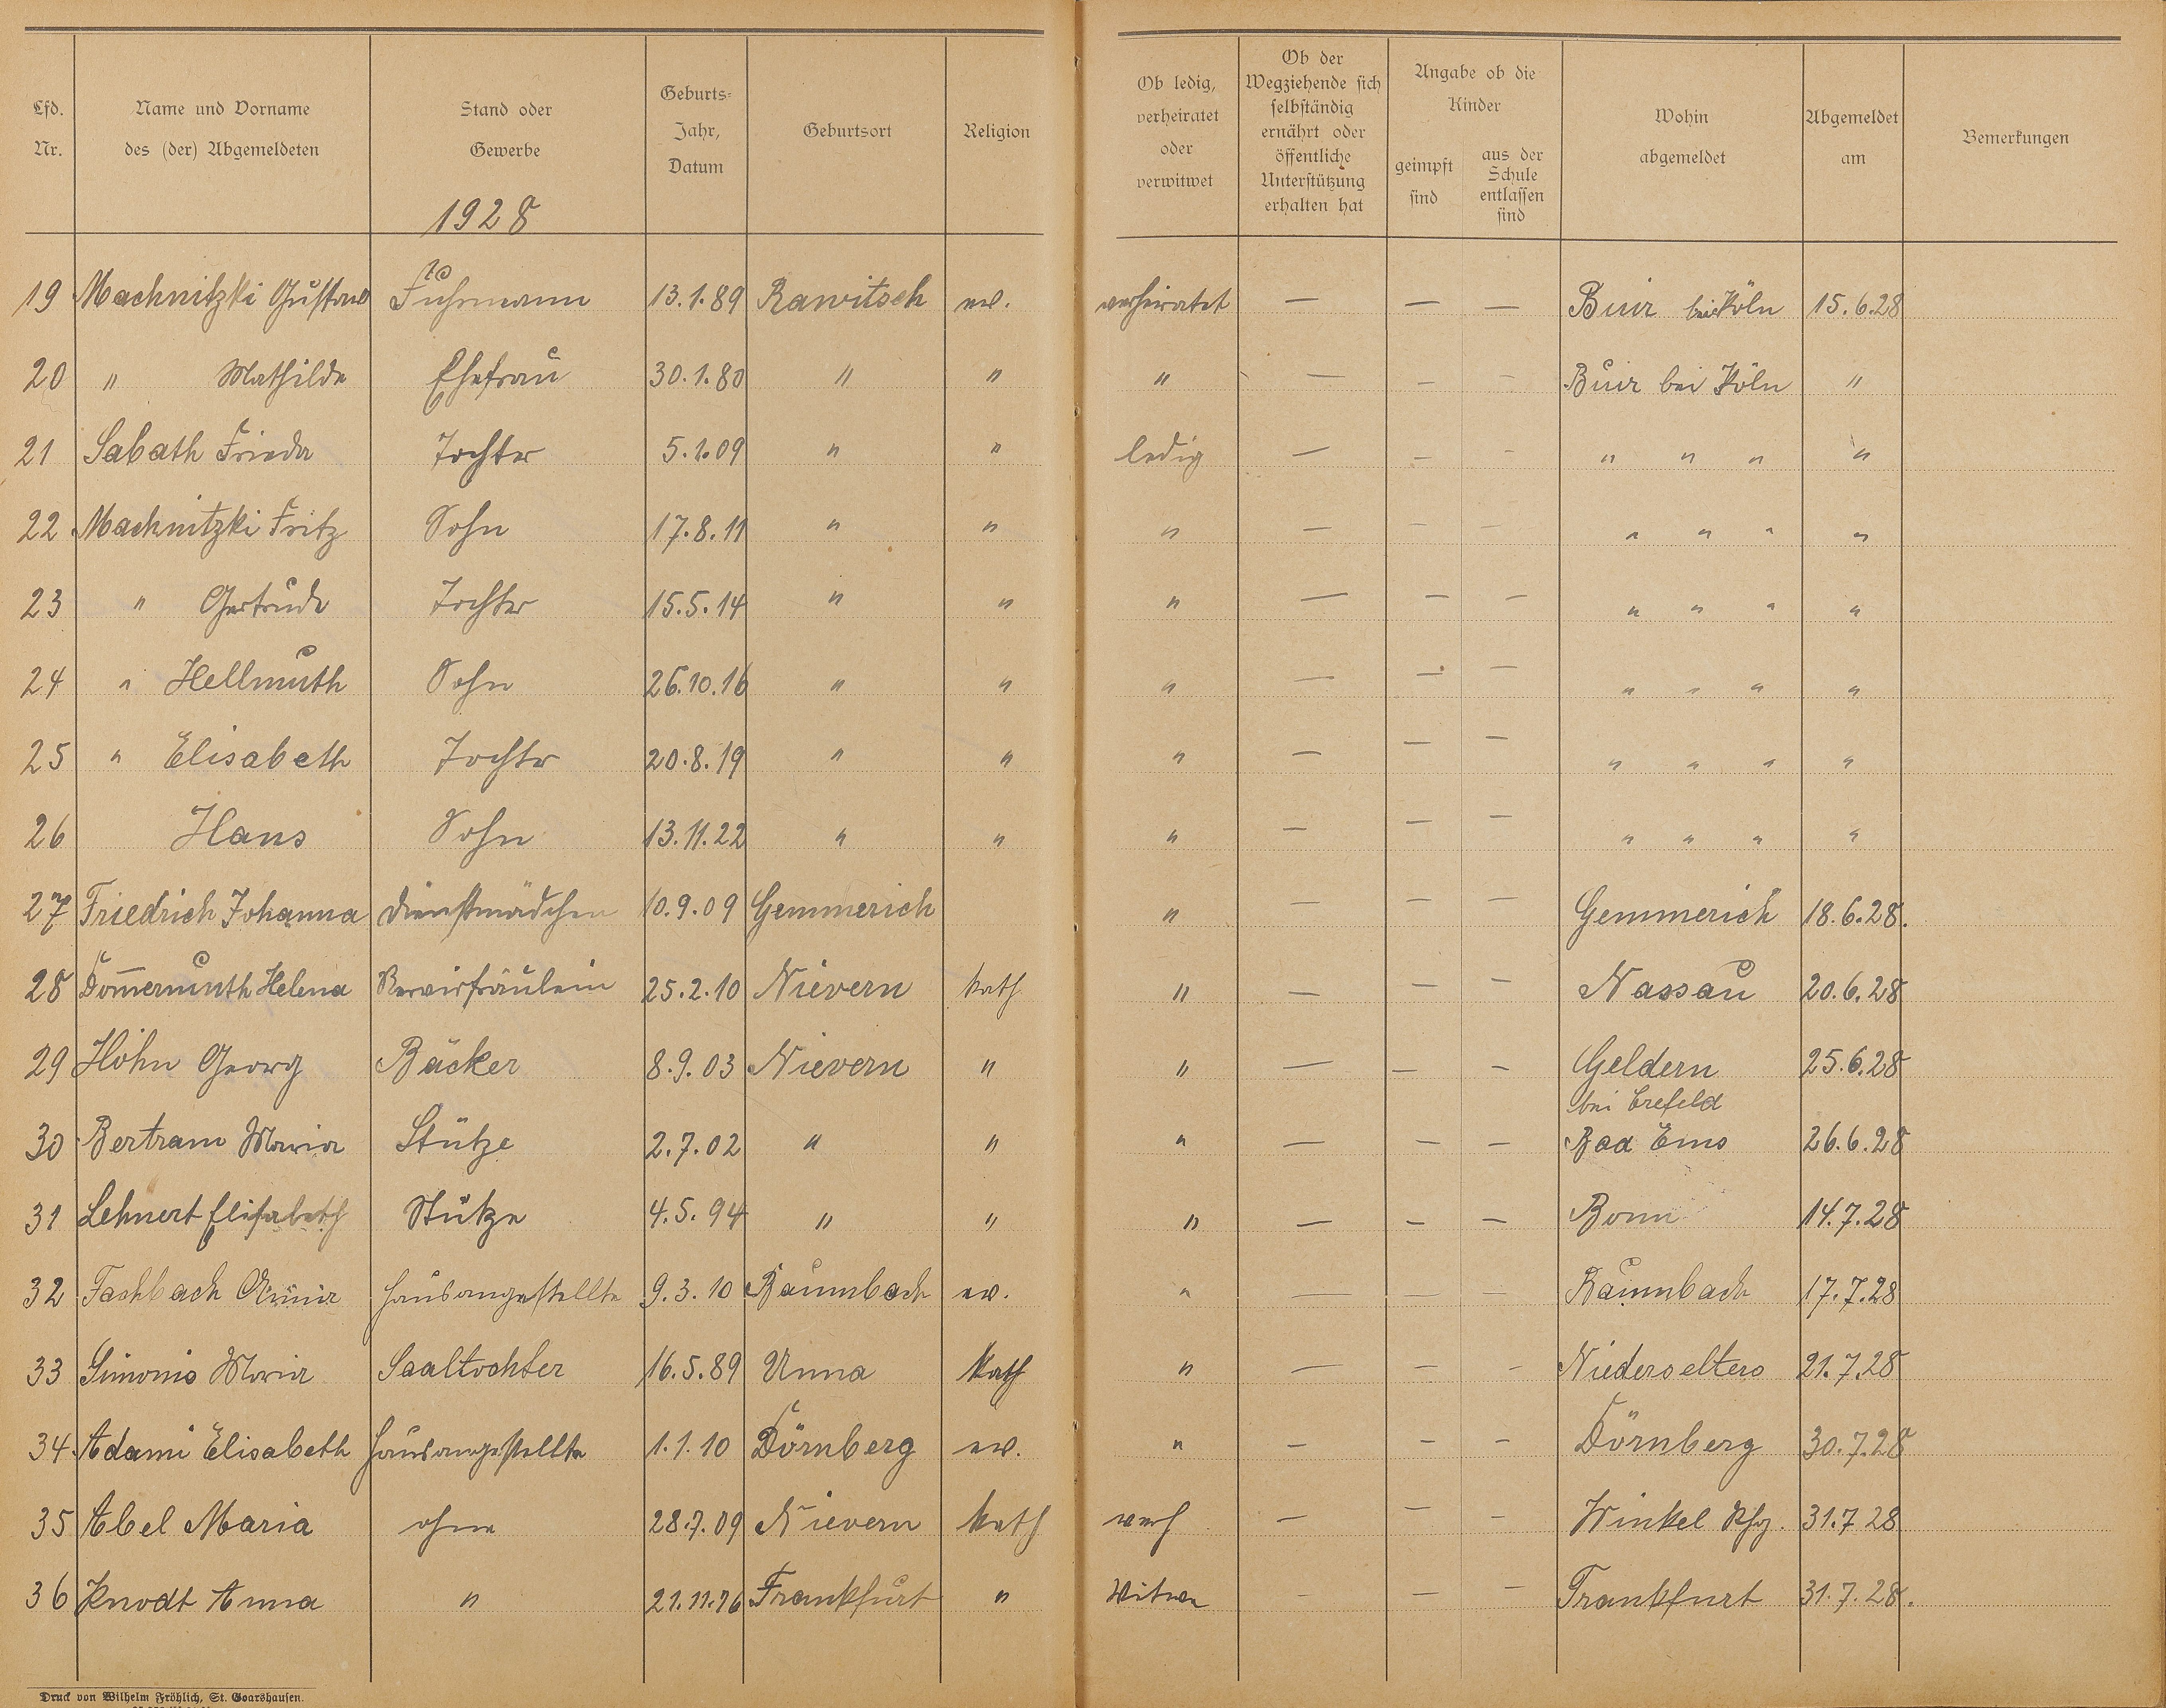 Lfd. Nr. | Name und Vorname des (der) Abgemeldeten | Stand oder Gewerbe | Geburts-Jahr, Datum | Geburtsort | Religion | Ob ledig, verheiratet oder verwitwet | Ob der Wegziehende sich selbständig ernährt oder öffentliche Unterstützung erhalten hat | Angabe ob die Kinder geimpft sind | aus der Schule entlassen sind | Wohin abgemeldet | Abgemeldet am | Bemerkungen
1928
19 Machnitzki Gustav Fuhrmann 13.1.89 Rawitsch ev. verheiratet — — — Buir bei Köln 15.6.28
20 " Mathilde Ehefrau 30.1.80 " " " — — — Buir bei Köln "
21 Sabath Frieda Tochter 5.1.09 " " ledig — — — " " " "
22 Machnitzki Fritz Sohn 17.8.11 " " " — — — " " " "
23 " Gertrude Tochter 15.5.14 " " " — — — " " " "
24 " Hellmuth Sohn 26.10.16 " " " — — — " " " "
25 " Elisabeth Tochter 20.8.19 " " " — — — " " " "
26 Hans Sohn 13.11.22 " " " — — — " " " "
27 Friedrich Johanna Dienstmädchen 10.9.09 Gemmerich " — — — Gemmerich 18.6.28.
28 Dom̅ermuth Helena Servirfräulein 25.2.10 Nievern kath " — — — Nassau 20.6.28
29 Höhn Georg Bäcker 8.9.03 Nievern " " — — — Geldern 25.6.28
bei Crefeld
30 Bertram Maria Stütze 2.7.02 " " " — — — Bad Ems 26.6.28
31 Lehnert Elisabeth Stütze 4.5.94 " " " — — — Bonn 14.7.28
32 Fachbach Hausangestellte 9.3.10 Baumbach ev. " — — — Baumbach 17.7.28
33 Simonis Maria Saaltochter 16.5.89 Unna kath " — — — Niederselters 21.7.28
34 Adami Elisabeth Hausangestellte 1.1.10 Dörnberg ev. " — — — Dörnberg 30.7.28
35 Abel Maria ohne 28.7.09 Nievern kath verh — — — Winkel Rhg. 31.7 28
36 Knodt Anna " 21.11.76 Frankfurt " Witwe — — — Frankfurt 31.7.28.
Druck von Wilhelm Fröhlich, St. Goarshausen.